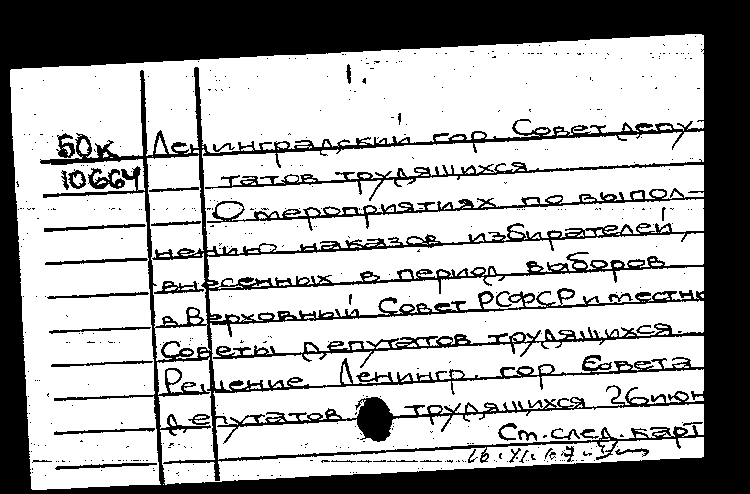 1.
50к Ленинградский гор. Совет депу-
10664 татов трудящихся.
О мероприятиях по выпол-
нению наказов избирателей,
внесенных в период выборов
в Верховный Совет РСФСР и местн
Советы депутатов трудящихся.
Решение Ленингр. гор. Совета
депутатов трудящихся 26 июн
См. след. карт